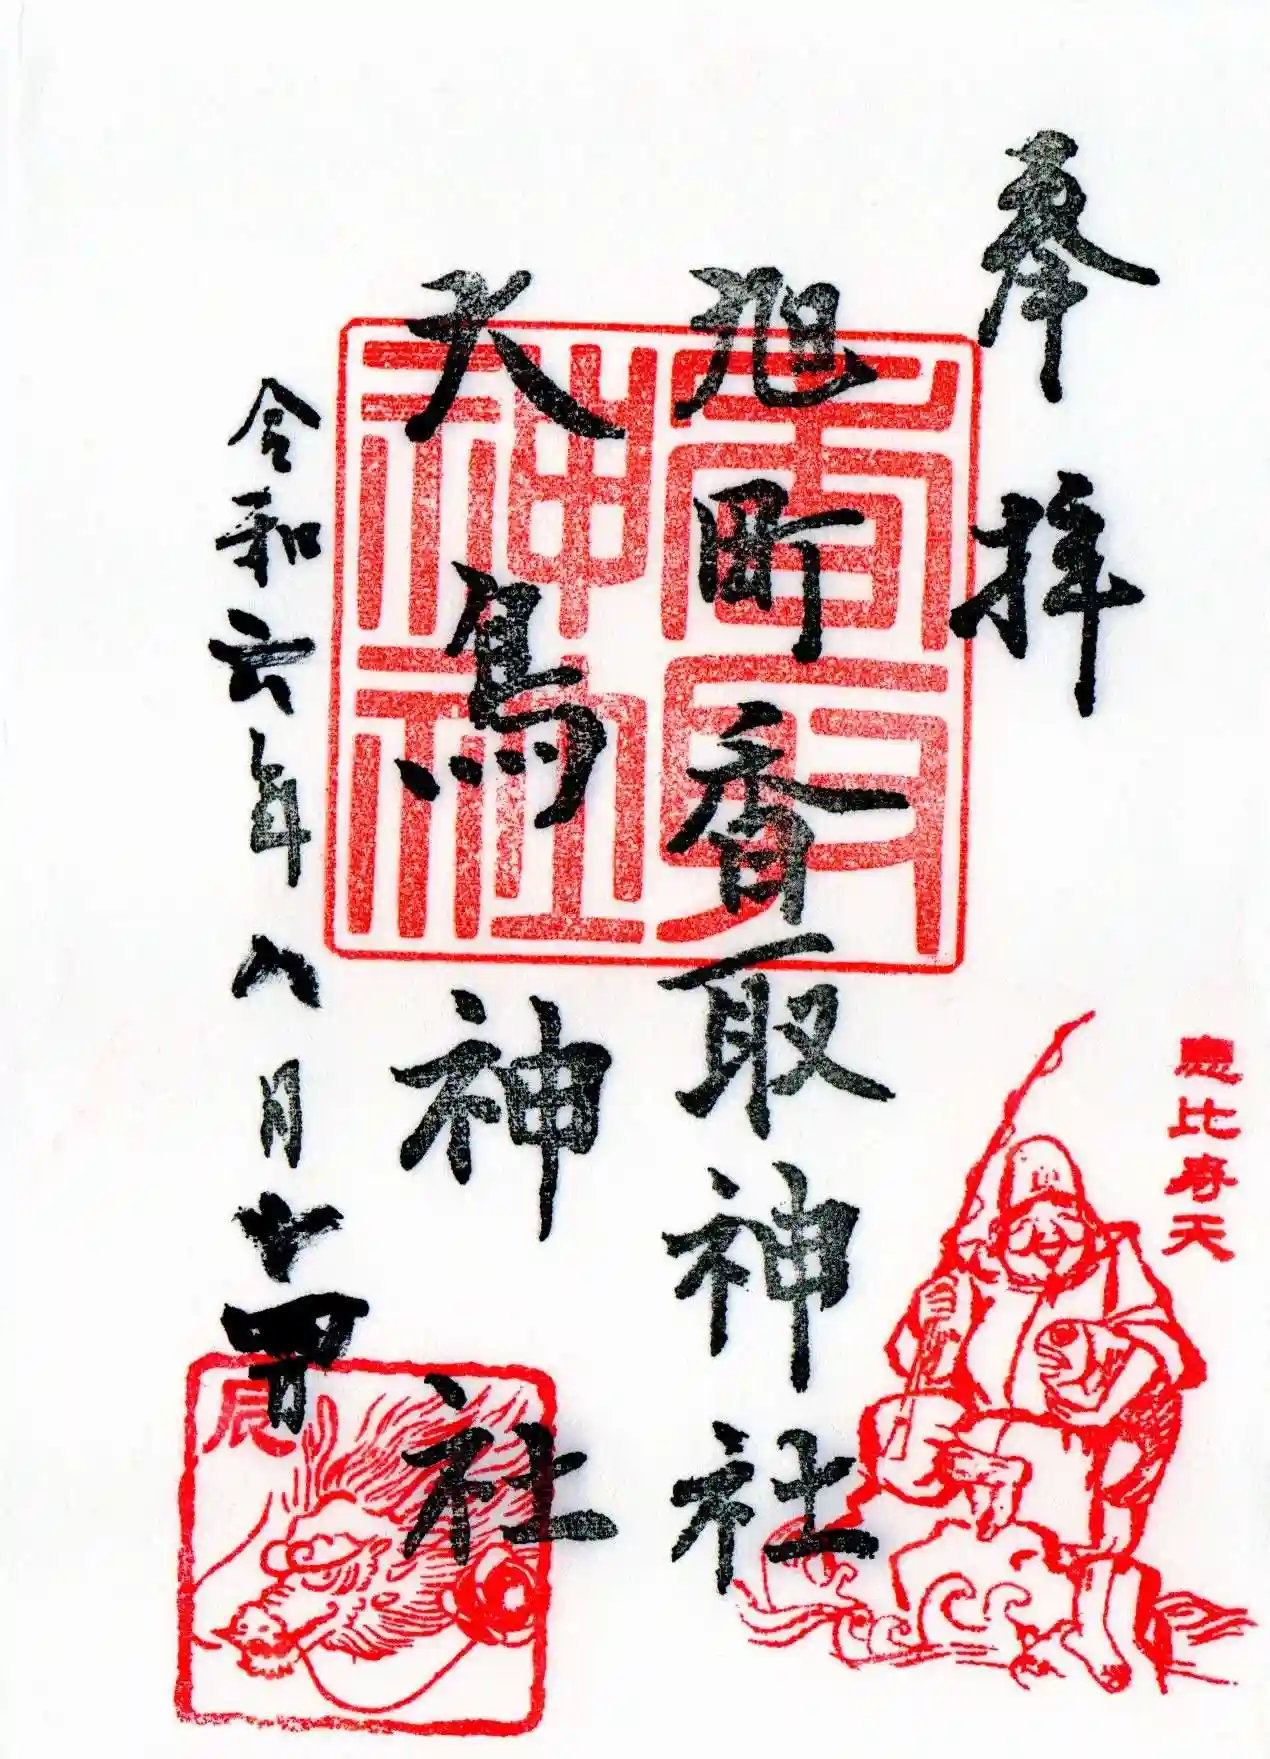 奉拝
恵比寿天
旭町香取神社
大鳥神社
香取神社
令和六年八月十四日
辰